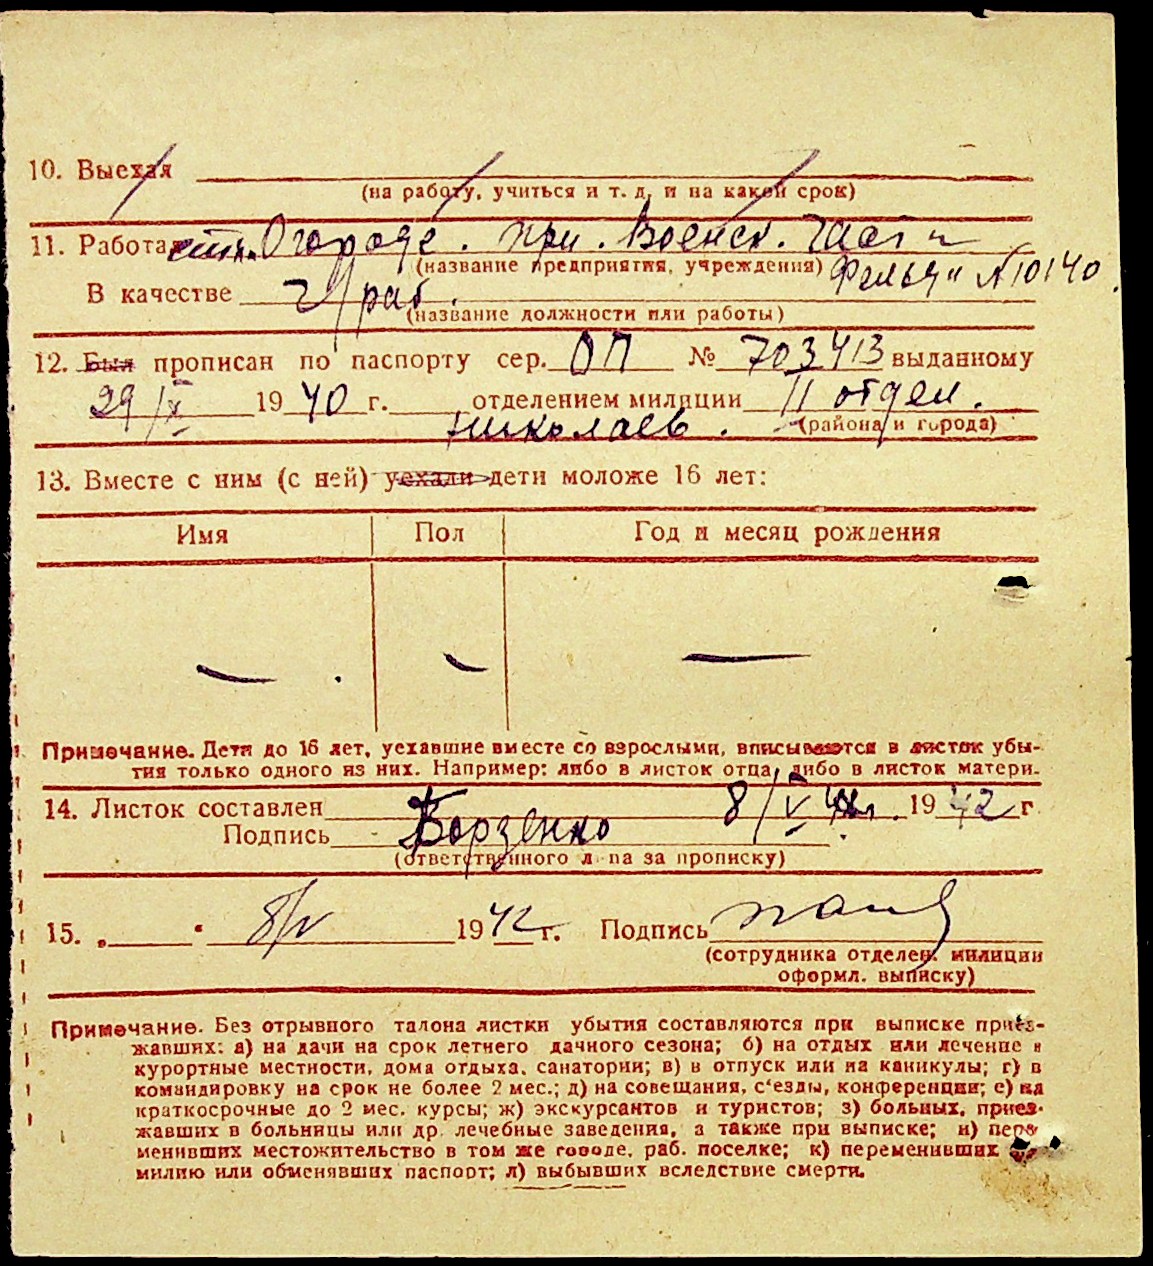 10. Выехал
(на работу, учиться и т. д. и на какой срок)
11. Работа Огороде. при. Воен​ск. Части
(название предприятия, учреждения) № 10140
В качестве раб.
(название должности или работы)
12. Был прописан по паспорту сер. ОП № 703413 выданному
29/IX 1940 г. отделением милиции II отдел.
Николаев. (района и города)
13. Вместе с ним (с ней) уехали дети моложе 16 лет:
Имя Пол Год и месяц рождения
— — —
Примечание. Дети до 16 лет, уехавшие вместе со взрослыми, вписываются в листок убы-
тия только одного из них. Например: либо в листок отца, либо в листок матери.
14. Листок составлен 8/V 1942 г
Подпись Борзенко
(ответственного лица за прописку)
15. „ “ 8/V 1942 г. Подпись
(сотрудника отделен. милиции
оформл. выписку)
Примечание. Без отрывного талона листки убытия составляются при выписке приез-
жавших: а) на дачи на срок летнего дачного сезона; б) на отдых или лечение в
курортные местности, дома отдыха, санатории; в) в отпуск или на каникулы; г) в
командировку на срок не более 2 мес.; д) на совещания, с'езды, конференции; е) на
краткосрочные до 2 мес. курсы; ж) экскурсантов и туристов; з) больных, приез-
жавших в больницы или др. лечебные заведения, а также при выписке; и) пере
менивших местожительство в том же городе, раб. поселке; к) переменивших
милию или обменявших паспорт; л) выбывших вследствие смерти.